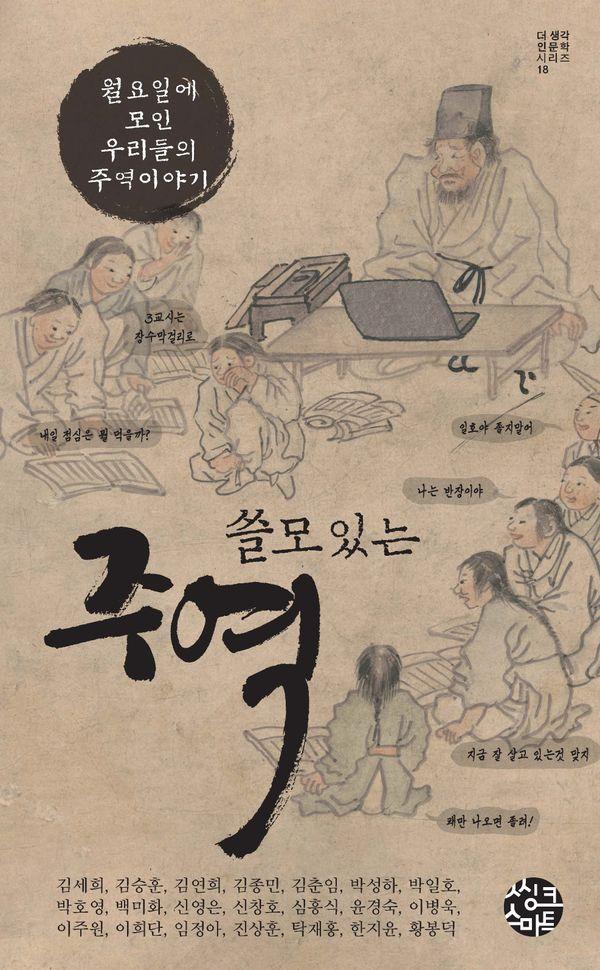 더 생각
인문학
시리즈
18
월요일에
모인
우리들의
주역이야기
3교시는
장수막걸리로
내일 점심은 뭘 먹을까?
일호야 졸지말어
나는 반장이야
쓸모 있는
주역
지금 잘 살고 있는것 맞지
괘만 나오면 졸려!
김세희, 김승훈, 김연희, 김종민, 김춘임, 박성하, 박일호,
박호영, 백미화, 신영은, 신창호, 심흥식, 윤경숙, 이병욱,
이주원, 이희단, 임정아, 진상훈, 탁재홍, 한지윤, 황봉덕
씽크
스마트